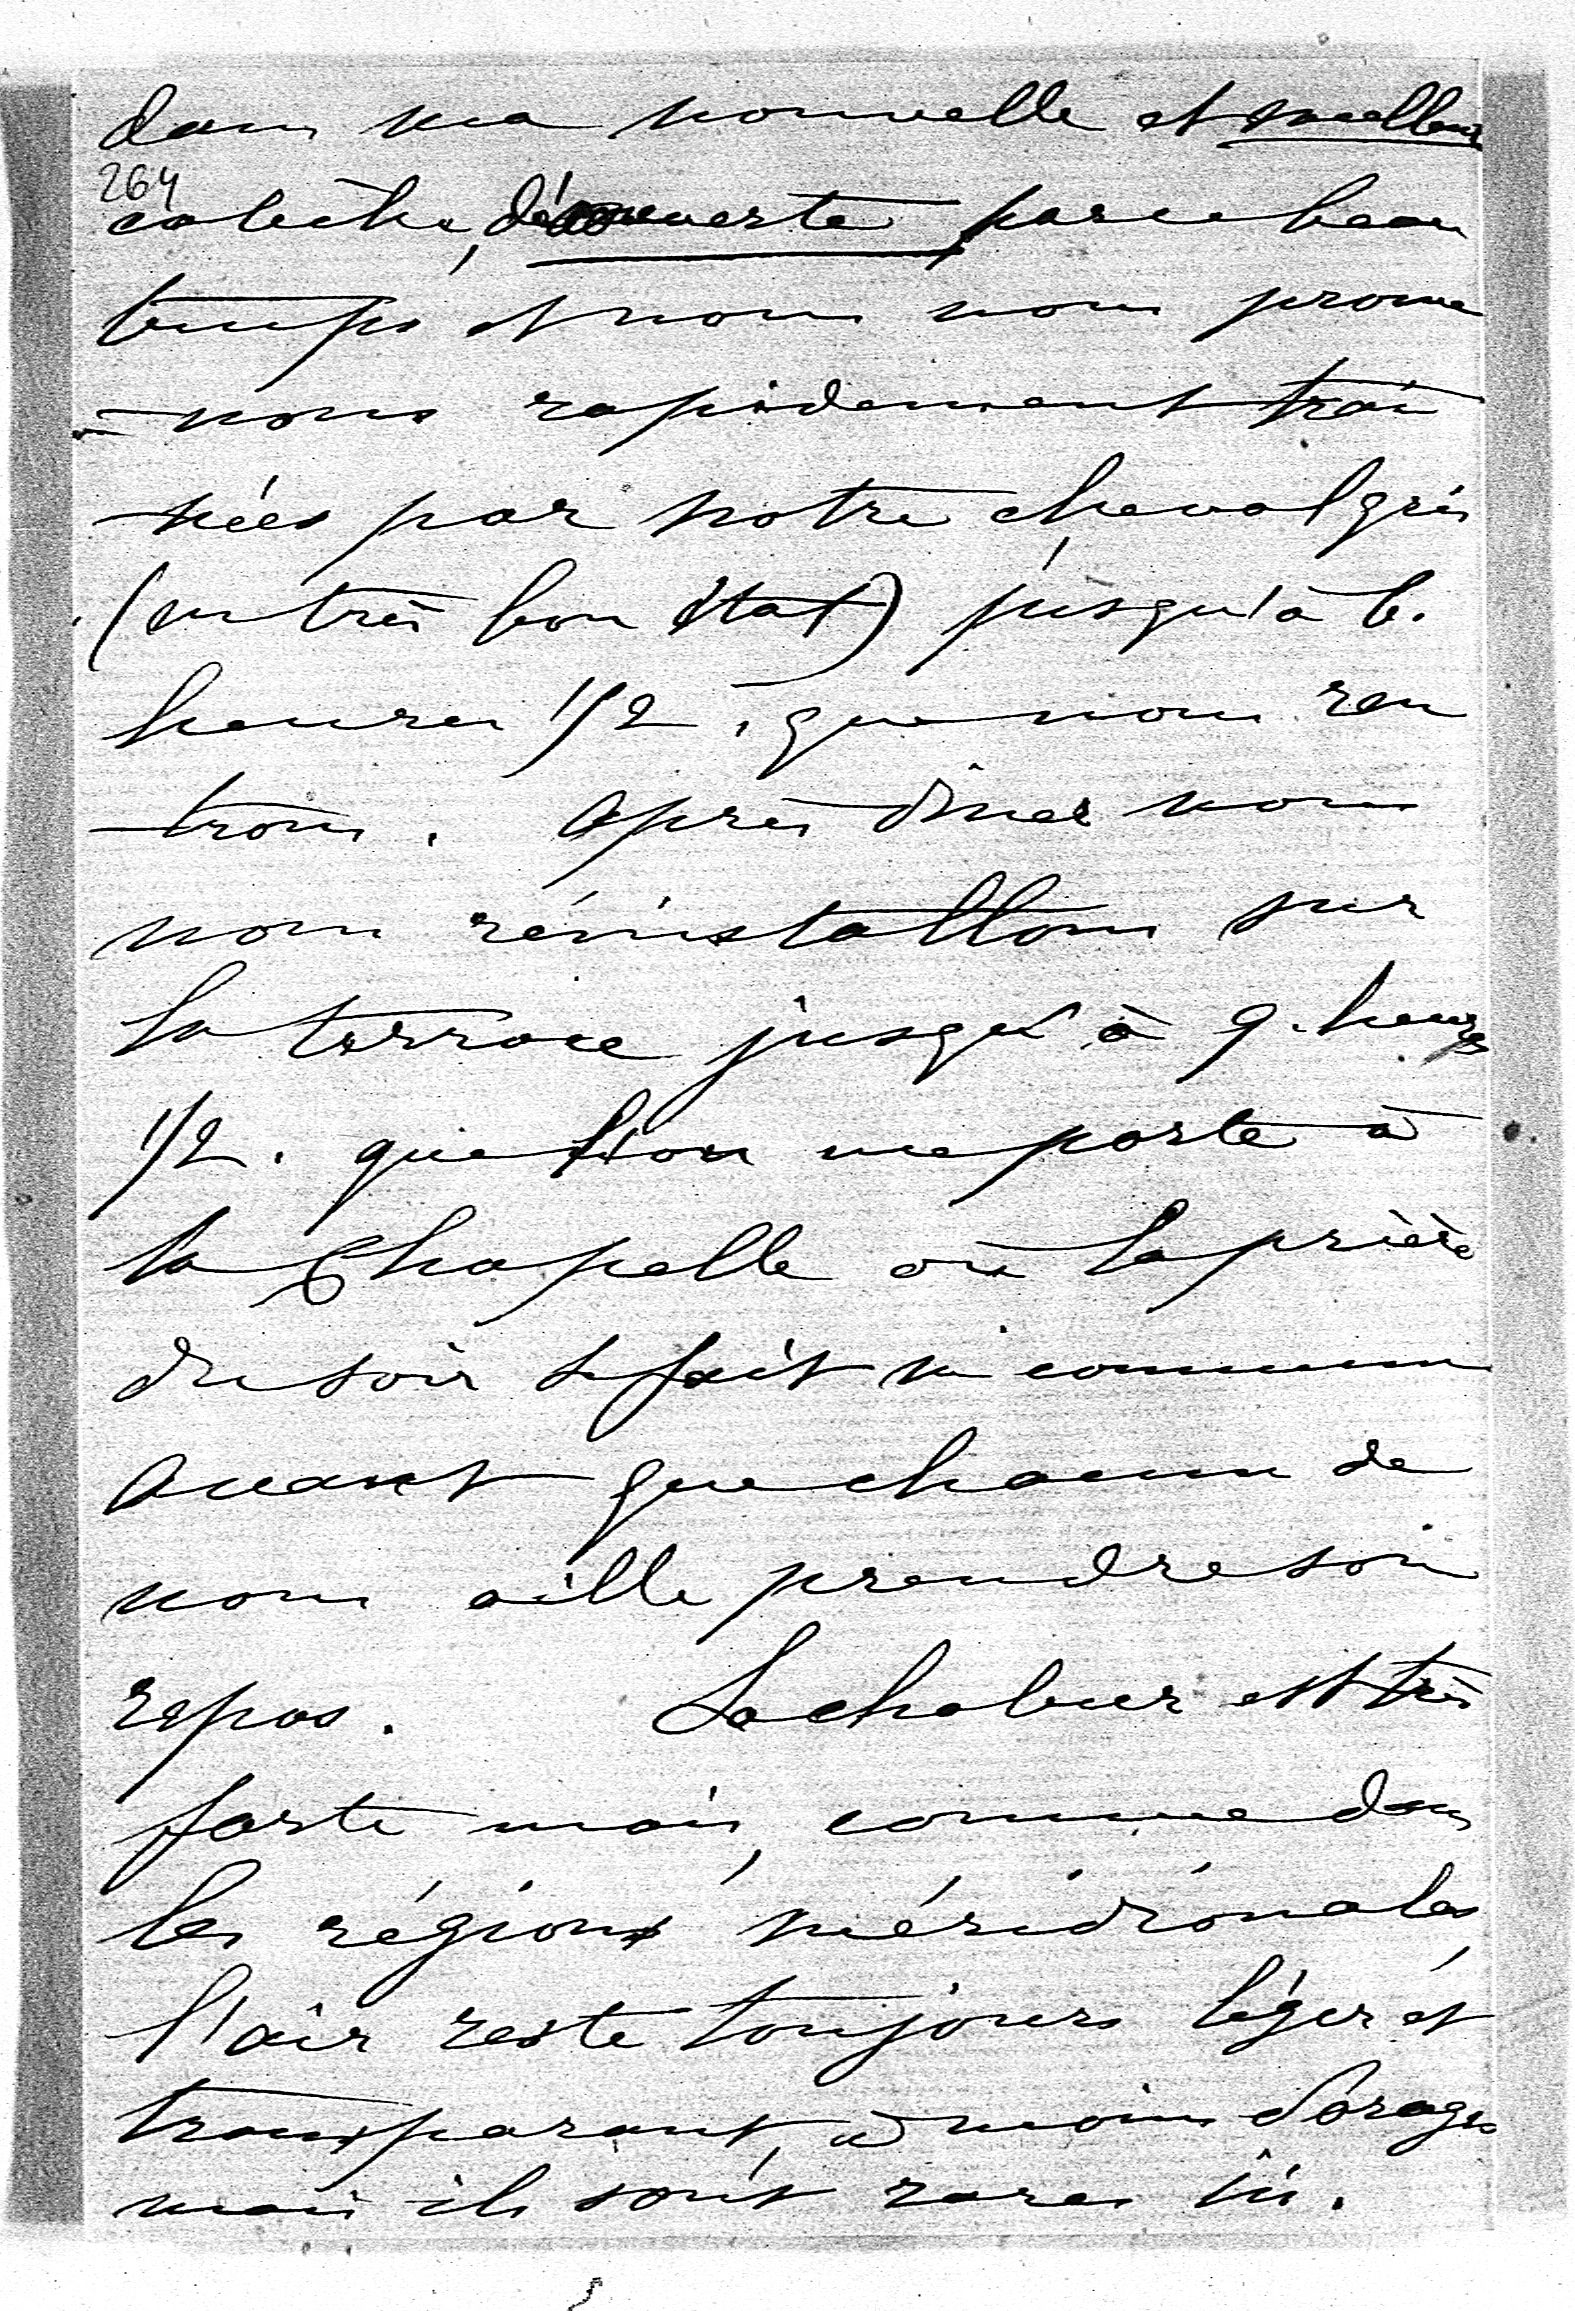 dans ma nouvelle et moelleuse
264
calèche, découverte par ce beau
temps et nous nous prome
-nons rapidement traî
nées par notre cheval gris
(en très bon état) jusqu'à 6.
heures 1/2. que nous ren
trons. Après diner nous
nous réinstallons sur
la terrasse jusqu'à 9. heures
1/2. que l'on me porte à
la Chapelle où la prière
du soir se fait en commun
avant que chacun de
nous aille prendre son
repos. La chaleur est très
forte mais, comme dans
les régions méridionales,
l'air reste toujours léger et
transparent, à moins d'orages
mais ils sont rares ici.